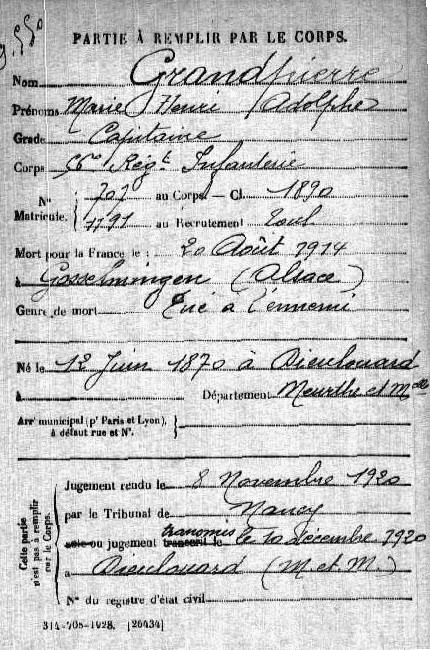 PARTIE À REMPLIR PAR LE CORPS.
Nom Grandpierre
Prénoms Marie Henri Adolphe
Grade Capitaine
Corps Régt Infanterie
N° 707 au Corps. — Cl. 1890
Matricule. 1191 au Recrutement Toul
Mort pour la France le : 20 Août 1914
à Gosselmingen (Alsace)
Genre de mort Tué à l'ennemi
Né le 12 Juin 1870 à Dieulouard
à Département Meurthe et Mlle
Arrt municipal (pr Paris et Lyon), à défaut rue et N°.
Cette partie n'est pas à remplir par le Corps.
Jugement rendu le 8 Novembre 1920
par le Tribunal de Nancy
acte ou jugement transcrit transmis le 10 décembre 1920
à Dieulouard (M. et M.)
N° du registre d'état civil
314-708-1928. [26434]